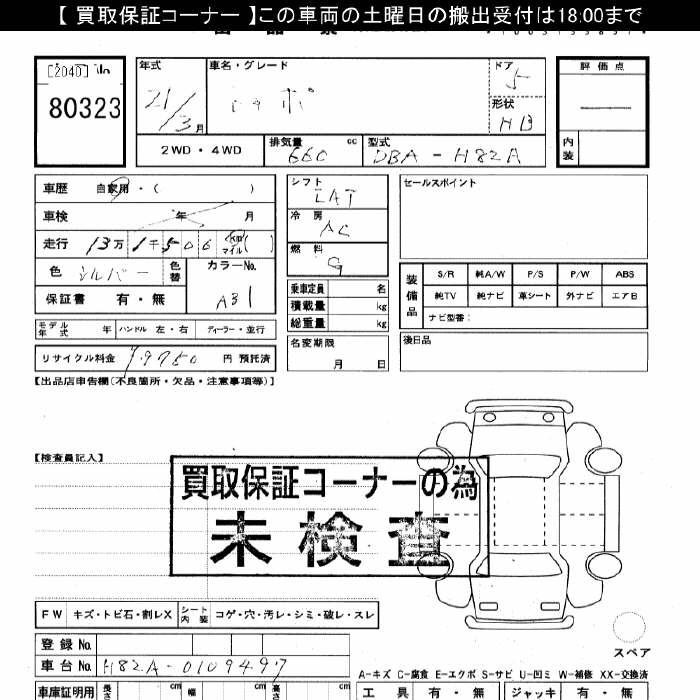 【 買取保証コーナー 】この車両の土曜日の搬出受付は18:00まで
[2040] No
80323
年式
21/3月
車名・グレード
トッポ
ドア
5
形状
HB
評価点
内装
2WD・4WD
排気量 660 cc
型式 DBA-H82A
車歴 自家用・( )
車検 年 月
走行 13万1千506 (km マイル)( )
色 シルバー 色替
カラーNo. A31
保証書 有・無
シフト
LAT
冷房
AC
燃料
G
乗車定員 名
積載量 kg
総重量 kg
名変期限
月 日
セールスポイント
装備品
S/R 純A/W P/S P/W ABS
純TV 純ナビ 革シート 外ナビ エアB
ナビ型番:
後日品
モデル年式 年 ハンドル 左・右 ディーラー・並行
リサイクル料金 円 預託済
【出品店申告欄(不良箇所・欠品・注意事項等)】
【検査員記入】
買取保証コーナーの為
未検査
FW キズ・トビ石・割レX シート内装 コゲ・穴・汚レ・シミ・破レ・スレ
スペア
登録 No.
車台 No. H82A-0109497
A-キズ C-腐食 E-エクボ S-サビ U-凹ミ W-補修 XX-交換済
車庫証明用 長さ cm 幅 cm 高さ cm
工具 有・無 ジャッキ 有・無